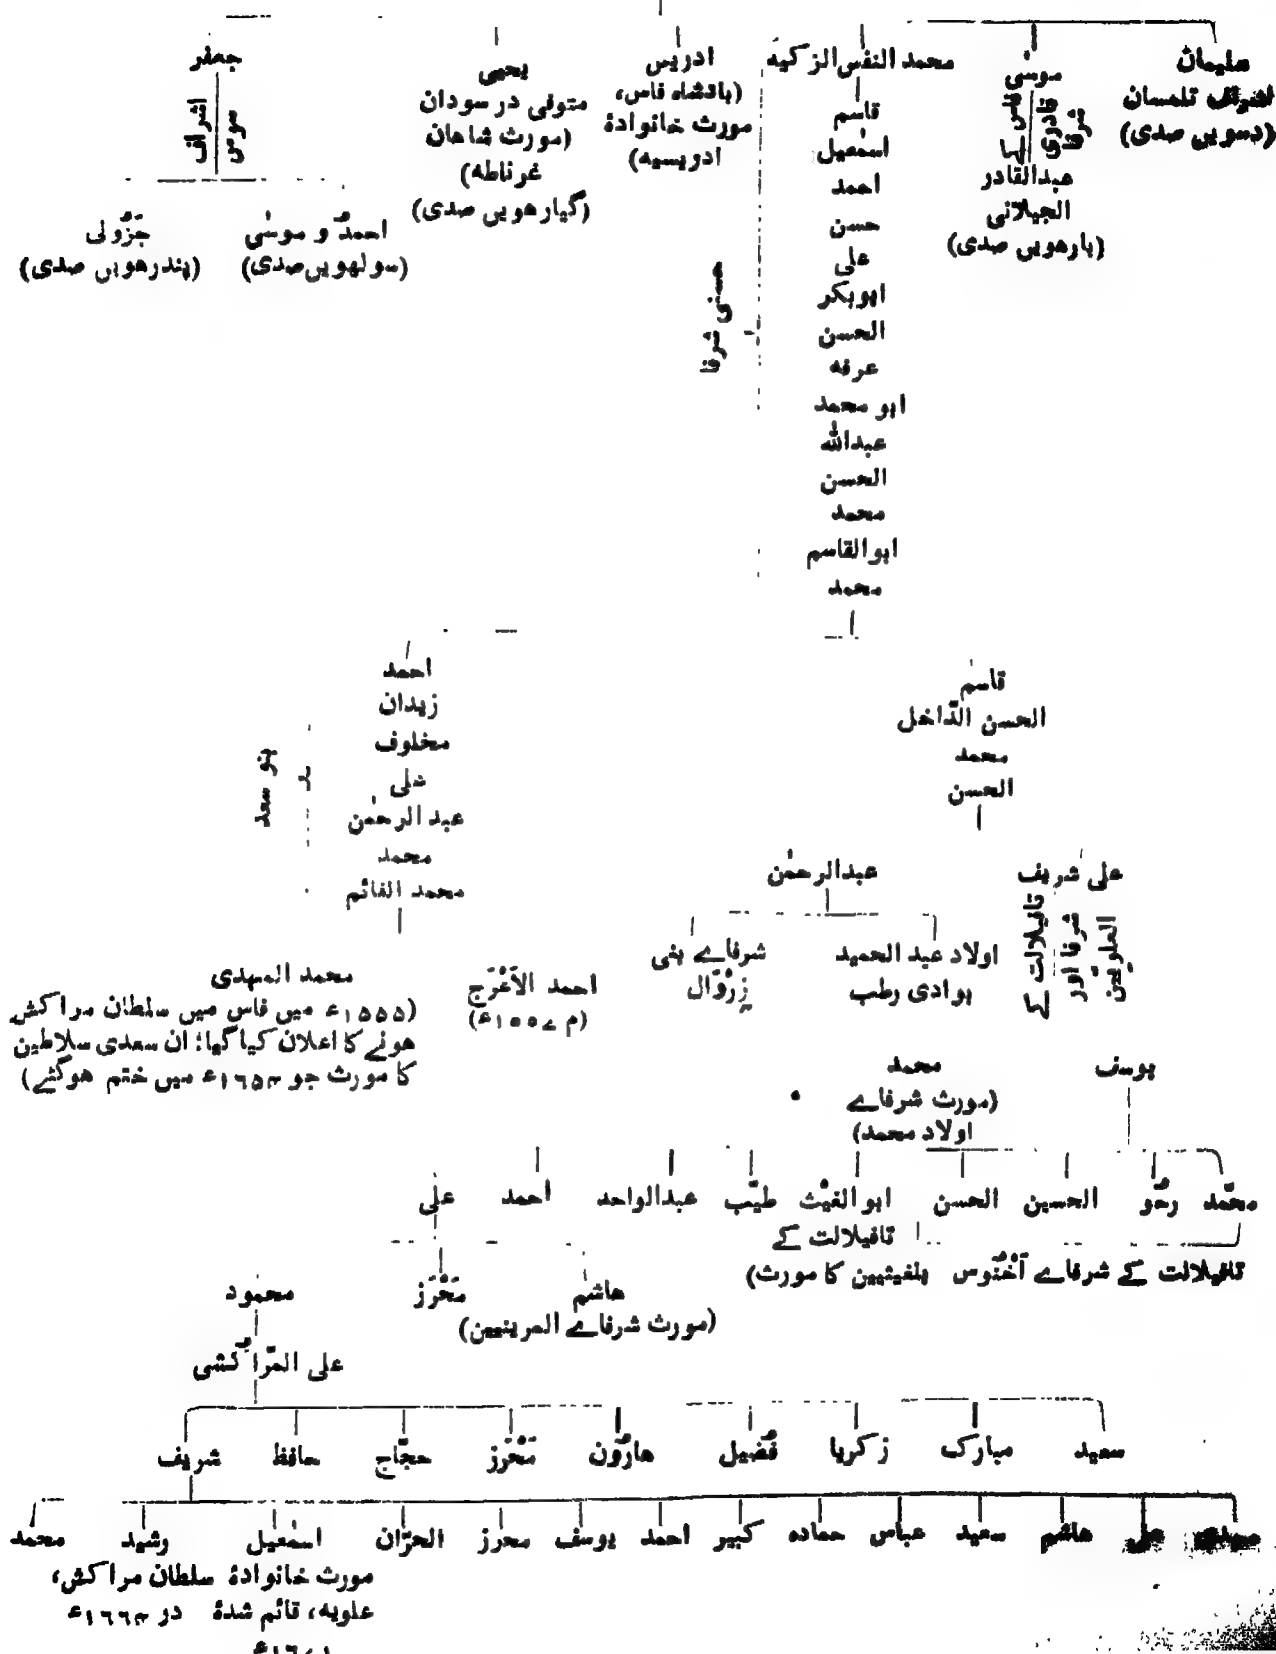 سلیمان
اشراف تلمسان
(دسویں صدی)
موسٰی
فاس کے
قادری
شرفا
عبدالقادر
الجیلانی
(بارھویں صدی)
محمد النفس الزکیه
قاسم
اسمٰعیل
احمد
حسن
علی
ابوبکر
الحسن
عرفه
ابو محمد
عبدالله
الحسن
محمد
ابوالقاسم
محمد
حسنی شرفا
ادریس
(بادشاہ فاس،
مورث خانوادۂ
ادریسیه)
یحیی
متوفی در سودان
(مورث شاھان
غرناطه)
(گیارھویں صدی)
جعفر
اشراف
سوس
احمدؐ و موسٰی
(سولھویں صدی)
جَزُولی
(پندرھویں صدی)
احمد
زیدان
مخلوف
علی
عبدالرحمٰن
محمد
محمد القائم
بنو سعد
قاسم
الحسن الدّاخل
محمد
الحسن
علی شریف
تافیلالت کے
شرفا اور
العلویّین
عبدالرحمٰن
اولاد عبد الحمید
بوادی رطب
شرفاے بنی
زِرْوَال
احمد الْأَعْرَج
(م ١٥٥٧ء)
محمد المہدی
(١٥٥٥ء میں فاس میں سلطان مراکش
ھونے کا اعلان کیا گیا؛ ان سعدی سلاطین
کا مورث جو ١٦٥٤ء میں ختم ھوگئے)
یوسف
محمد
(مورث شرفاے
اولاد محمد)
محمّد
رحّو
الحسین
الحسن
ابو الغیْث
طیّب
عبدالواحد
احمد
علی
تافیلالت کے
بلغیثیین کا مورث)
تافیلالت کے شرفاے آخْنُوس
ھاشم
(مورث شرفاے المرینیین)
مَحْرَز
محمود
علی المرّاکُشی
سعید
مبارک
زکریا
فُضَیل
ھارُون
مَحْرَز
حجّاج
حافظ
شریف
مہدی
علی
ھاشم
سعید
عباس
حماده
کبیر
احمد
یوسف
محرز
الحرّان
اسمٰعیل
رشید
محمد
مورث خانوادۂ سلطان مراکش،
علویه، قائم شدۂ در ١٦٦٤ء